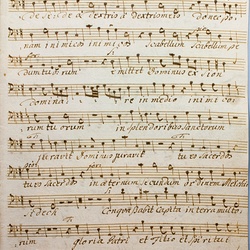 sede sede a dextris a dextris meis donec po
nam inimicos inimicos scabellum scabellum pe
dum tuorum emittet Dominus ex Sion
dominare in medio inimico
rum tuorum in splendoribus sanctorum
juravit Dominus juravit tu es sacerdos
tu es sacerdos in aeternum secundum ordinem Melchi
sedech conquassabit capita in terra multo
rum gloria Patri et Filio et Spiritui